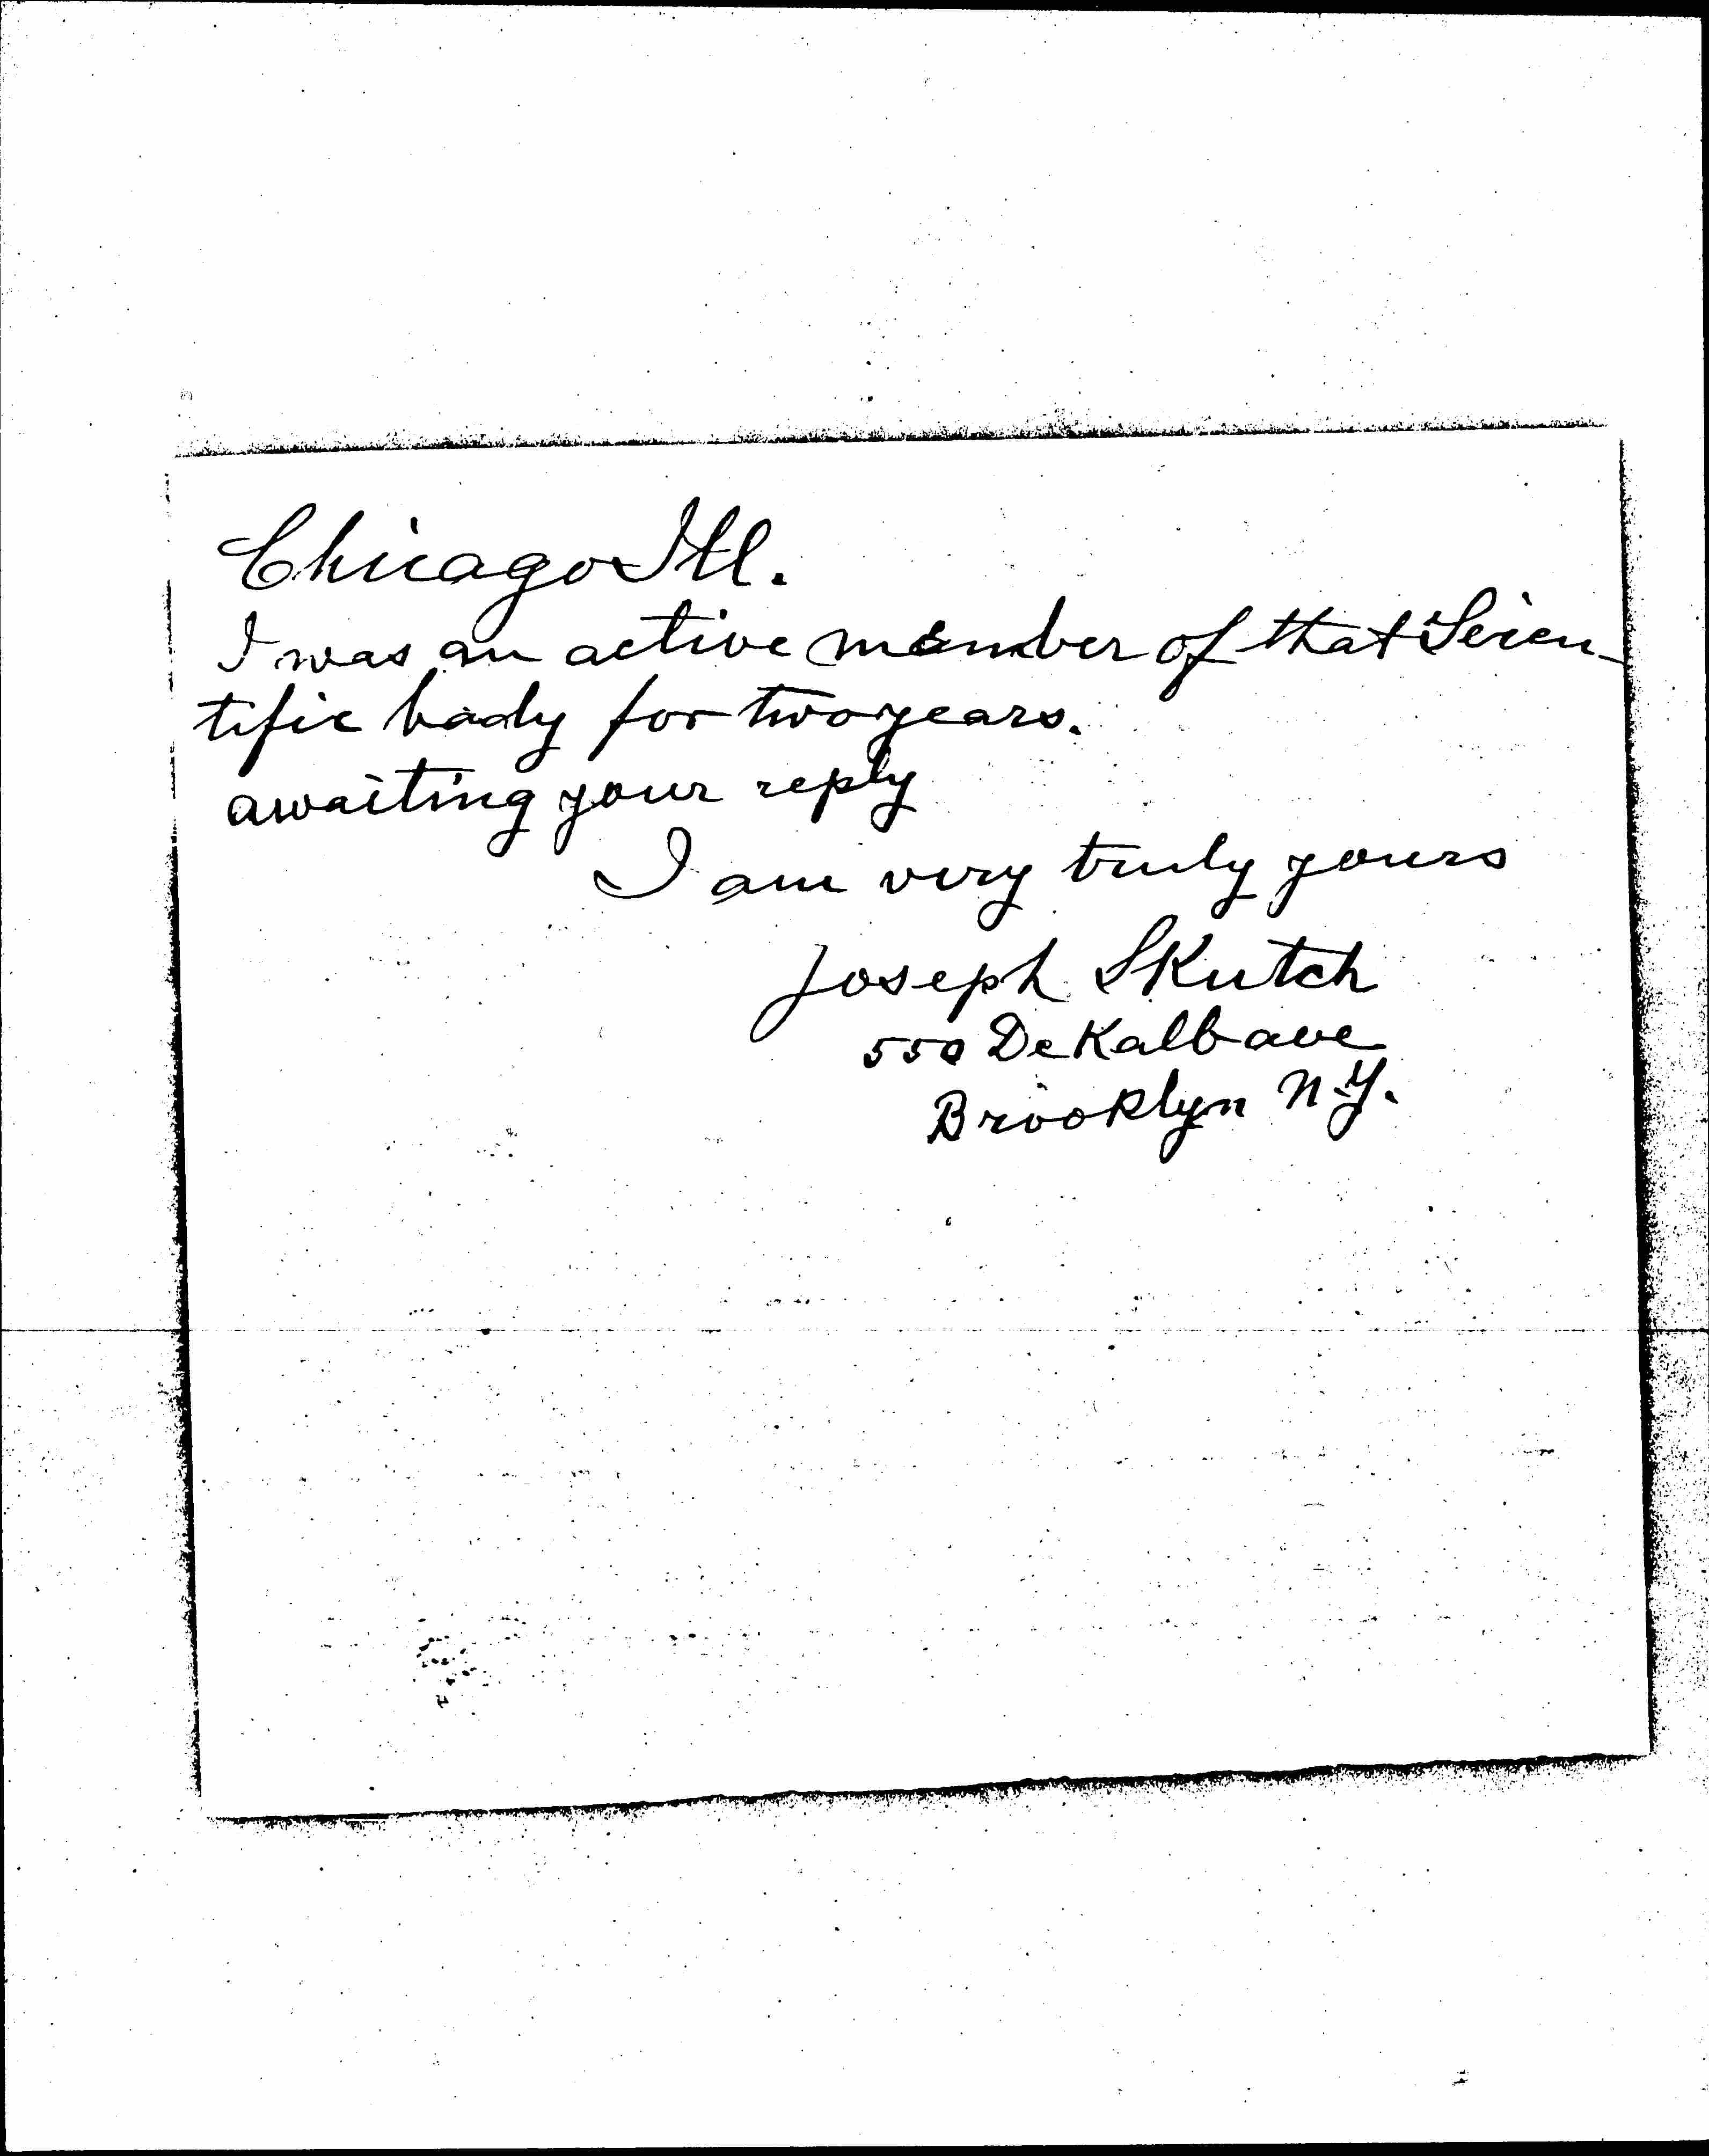 Chicago Ill.
I was an active member of that Scien-
tific body for two years.
awaiting your reply
I am very truly yours
Joseph Skutch
550 DeKalb ave
Brooklyn N.Y.